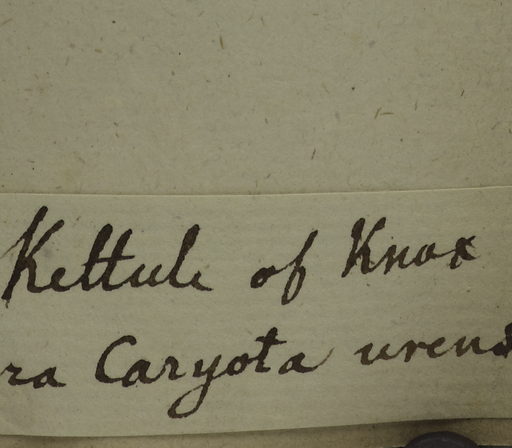 Kettule of Knox
ra Caryota urens